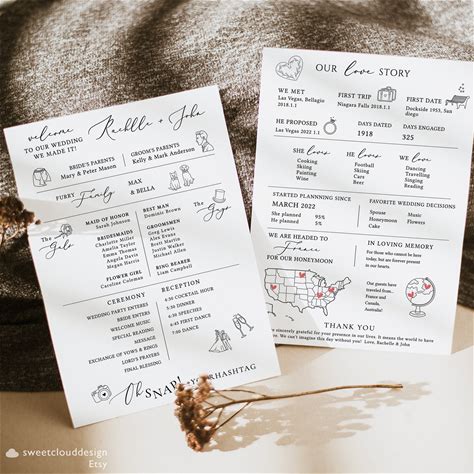 welcome
TO OUR WEDDING
WE MADE IT!
Rachelle + John
BRIDE'S PARENTS
Mary & Peter Mason
GROOM'S PARENTS
Kelly & Mark Anderson
FURRY Family
MAX
& BELLA
The Gals
MAID OF HONOR
Sarah Johnson
BRIDESMAIDS
Charlotte Miller
Amelia Taylor
Emma Thomas
Angela Davis
Megan Harris
FLOWER GIRL
Caroline Coleman
BEST MAN
Dominic Brown
GROOMSMEN
Greg Lewis
Alex Evans
Scott Martin
Justin Walker
Michael Allen
RING BEARER
Liam Campbell
The Guys
CEREMONY
WEDDING PARTY ENTERES
BRIDE ENTERS
WELCOME MUSIC
SPECIAL READING
MESSAGE
EXCHANGE OF VOWS & RINGS
LORD'S PRAYERS
FINAL BLESSING
RECEPTION
4:30 COCKTAIL HOUR
5:30 DINNER
6:30 SPEECHES
6:45 FIRST DANCE
7:00 DANCE
Oh SNAP!
OUR love STORY
WE MET
Las Vegas, Bellagio
2018.1.1
FIRST TRIP
Niagara Falls
2018.1.1
FIRST DATE
Dockside 1953, San
Diego
HE PROPOSED
Las Vegas
DAYS DATING
1918
DAYS ENGAGED
325
She loves
Cooking
Skiing
Painting
Wine
He loves
Football
Skiing
Cars
Beer
We love
Dancing
Travelling
Singing
Reading
STARTED PLANNNING SINCE
MARCH 2022
She planned 95%
He planned 5%
FAVORITE WEDDING DECISIONS
Spouse
Honeymoon
Cake
Music
Flowers
WE ARE HEADED TO
France
FOR OUR HONEYMOON
IN LOVING MEMORY
For those who cannot be here
today, but are forever present
in our hearts.
Our guests have
traveled from...
France and
Canada,
Australia!
THANK YOU
sincerely grateful for your presence in our lives. It means the world to have
We can't imagine this day without you! Love, Rachelle & John
sweetclouddesign
Etsy